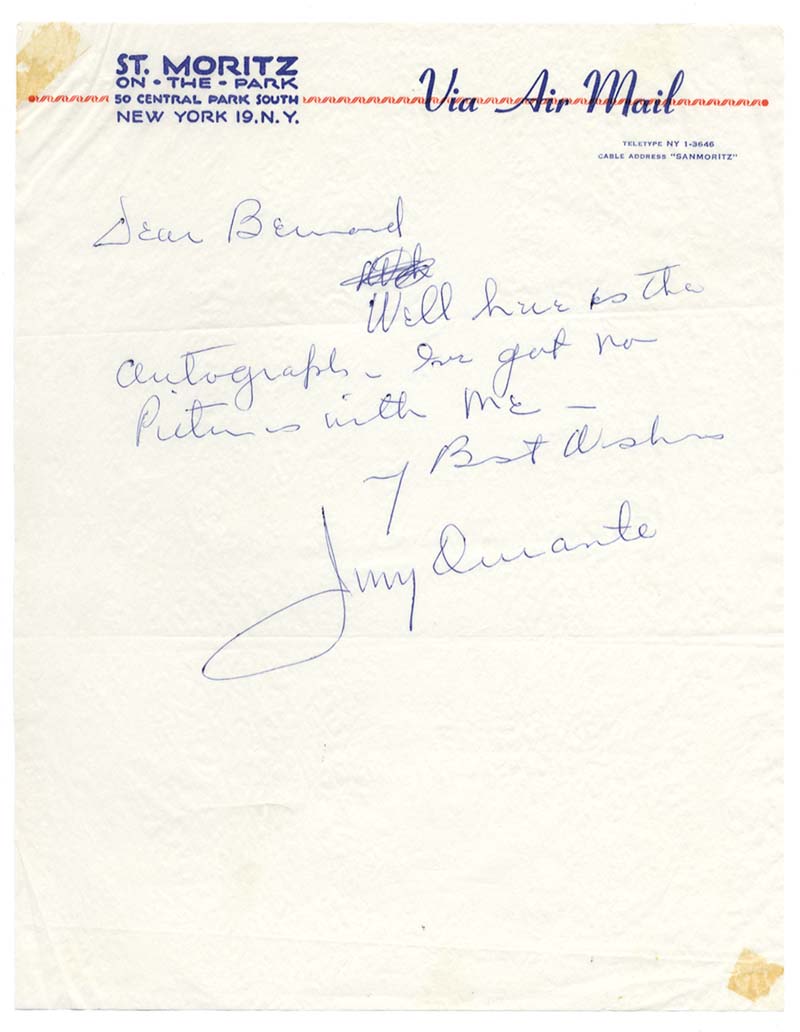 ST. MORITZ
ON - THE - PARK
50 CENTRAL PARK SOUTH
NEW YORK 19, N.Y.
Via Air Mail
TELETYPE NY 1-3646
CABLE ADDRESS "SANMORITZ"
Dear Bernard
Well here is the
autograph - Ive got no
Pictures with Me -
My Best Wishes
Jimmy Durante